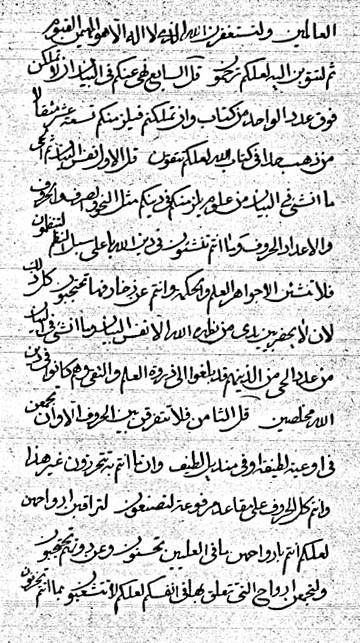 العالمين ولتستغفرن الله الذي لا اله الا هو المهيمن القيوم
ثم لتتوبن اليه لعلكم ترحمون قل السابع نهي عنكم في البيان ان لا تملكن
فوق عدد الواحد من كتاب وان تملكتم فيلزمنكم تسعة عشر مثقالا
من ذهب حدا في كتاب الله لعلكم تتقون قل الاول نفس البيان ثم الحي
ما انشئ في البيان من علوم يلزمنكم في دينكم مثل النحو والصرف والحروف
والاعداد الحروف وما انتم تنشئون في دين الله ما على سبيل النظم لتنظمون
فلا تنشئن الا جواهر العلم والحكمة وانتم عن زخارفها تحتجبون كل ذلك
لان لا يحضر بين يدي من يظهره الله الا نفس البيان وما انشئ في البيان
من عدد الحي من الذينهم قد بلغوا الى ذروة العلم والتقى وهم كانوا في دين
الله مخلصين قل الثامن فلا تتفرقن بين الحروف الا وان تجمعن
في اوعية لطيفة او في منديل لطيف وان ما انتم به تحرزون غير هذا
وانتم كل الحروف على مقاعد مرفوعة لتصنعون لتراقبن ارواحهن
لعلكم انتم بارواحهن ما في العليين تحسنون وعن دونه تحتجبون
ولتجمعن ارواح التي تعلق بها في انفسكم لعلكم لا تتشعبون بما انتم تحزنون